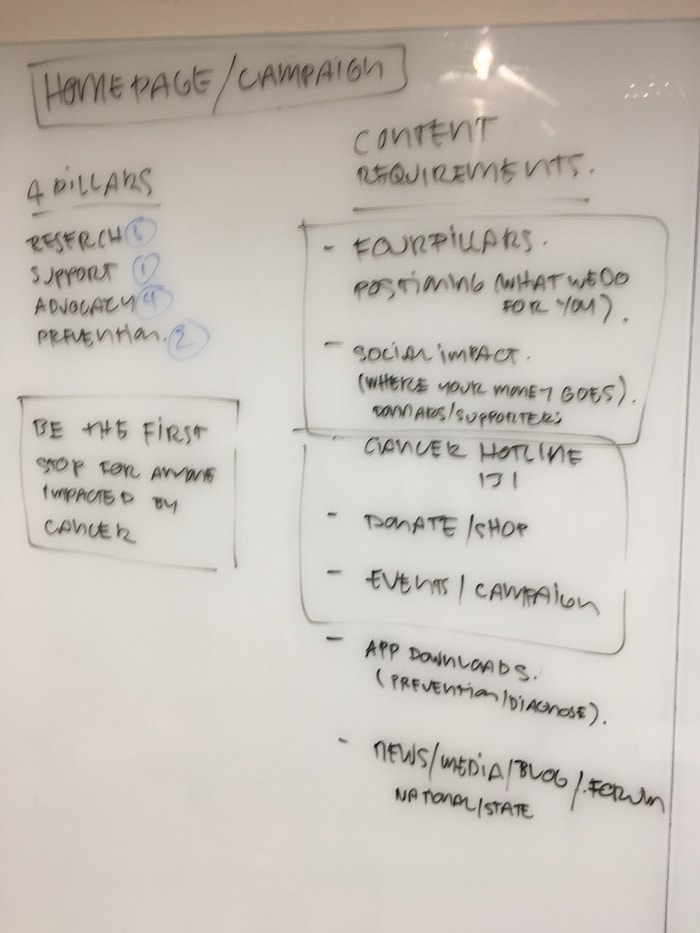 HOMEPAGE/CAMPAIGN
4 PILLARS
RESERCH 3
SUPPORT 1
ADVOCACY 4
PREVENTION. 2
BE THE FIRST
STOP FOR ANYONE
IMPACTED BY
CANCER
CONTENT
REQUIREMENTS.
- FOUR PILLARS.
POSITIONING (WHAT WE DO
FOR YOU).
- SOCIAL IMPACT.
(WHERE YOUR MONEY GOES).
/SUPPORTERS
CANCER HOTLINE
131
- DONATE/SHOP
- EVENTS/CAMPAIGN
- APP DOWNLOADS.
(PREVENTION/DIAGNOSE).
- NEWS/MEDIA/BLOG/.FORUM
NATIONAL/STATE